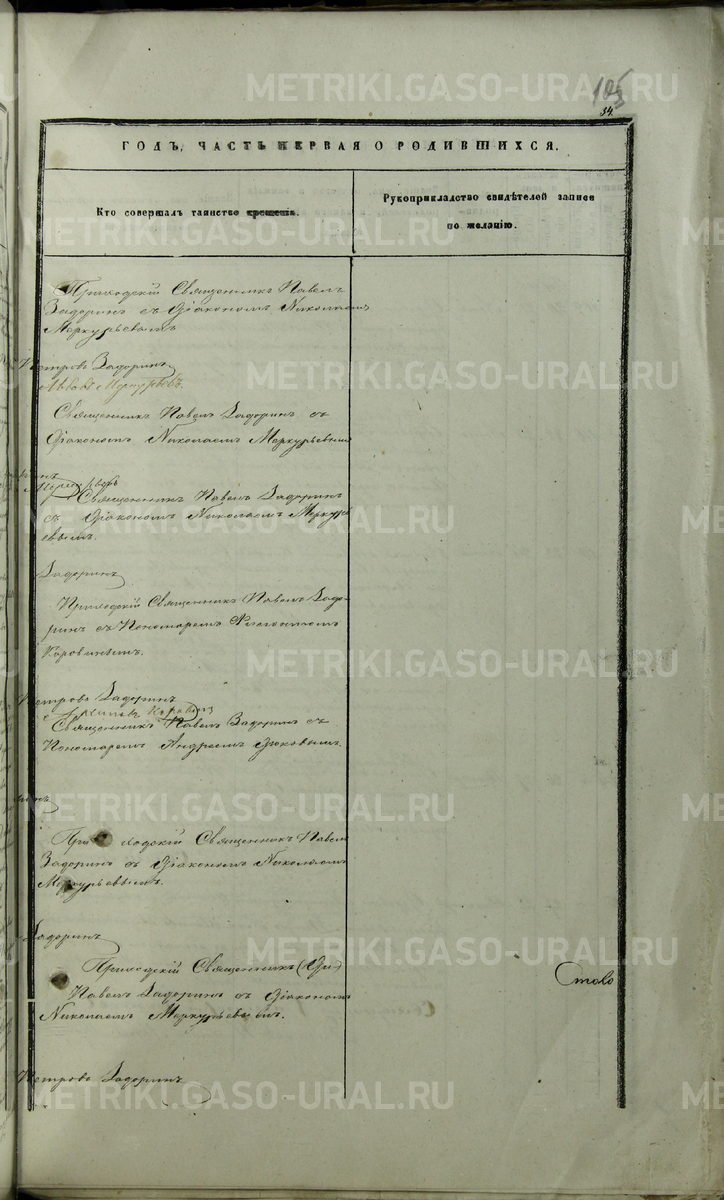 METRIKI.GASO-URAL.RU
105
34.
ГОДЪ, ЧАСТЬ ПЕРВАЯ О РОДИВШИХСЯ.
Кто совершалъ таинство крещенія.
Рукоприкладство свидѣтелей записи
по желанію.
Приходскій Священникъ Павелъ
Задоринъ съ Діакономъ Николаемъ
Меркурьевымъ
Петровъ Задоринъ
Меркурьевъ.
Священникъ Павелъ Задоринъ съ
Діакономъ Николаемъ Меркурьевымъ
Священникъ Павелъ Задоринъ
съ Діакономъ Николаемъ Меркурь
евымъ.
Задоринъ
Приходскій Священникъ Павелъ Задо-
ринъ съ Пономаремъ
Коровинымъ.
Петровъ Задоринъ
Священникъ Павелъ Задоринъ съ
Пономаремъ Андреемъ
Приходскій Священникъ Павелъ
Задоринъ съ Діакономъ Николаемъ
Меркурьевымъ.
Задоринъ
Приходскій Священникъ
Павелъ Задоринъ съ Діакономъ
Николаемъ Меркурьевымъ.
Петровъ Задоринъ